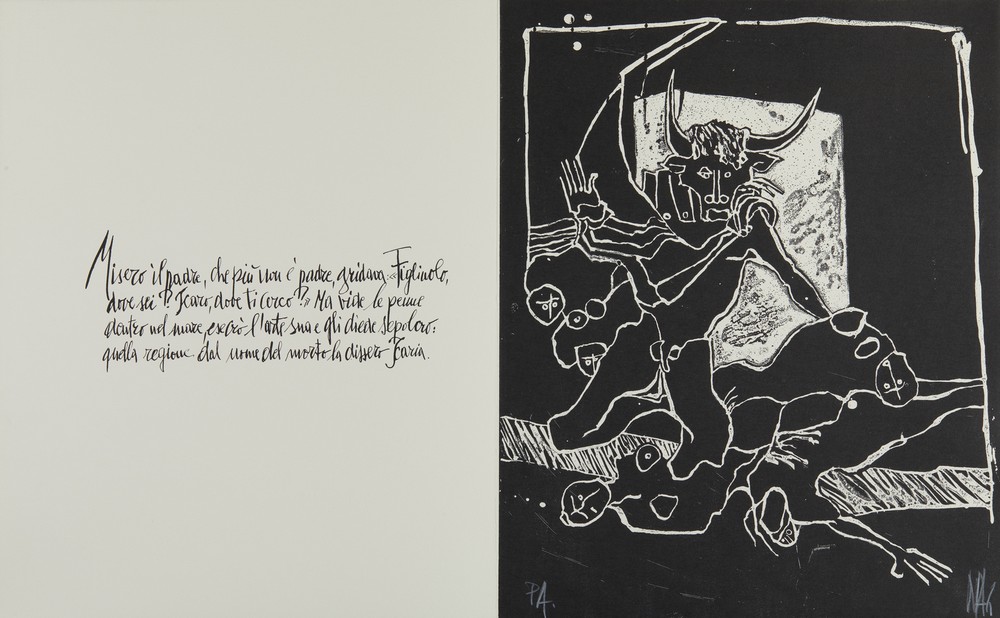 Misero il padre, che più non è padre, gridava: «Figliuolo,
dove sei? Icaro, dove ti cerco?» Ma vide le penne
dentro nel mare, esecrò l'arte sua e gli diede sepolcro:
quella regione dal nome del morto la dissero Icaria.
P.A.